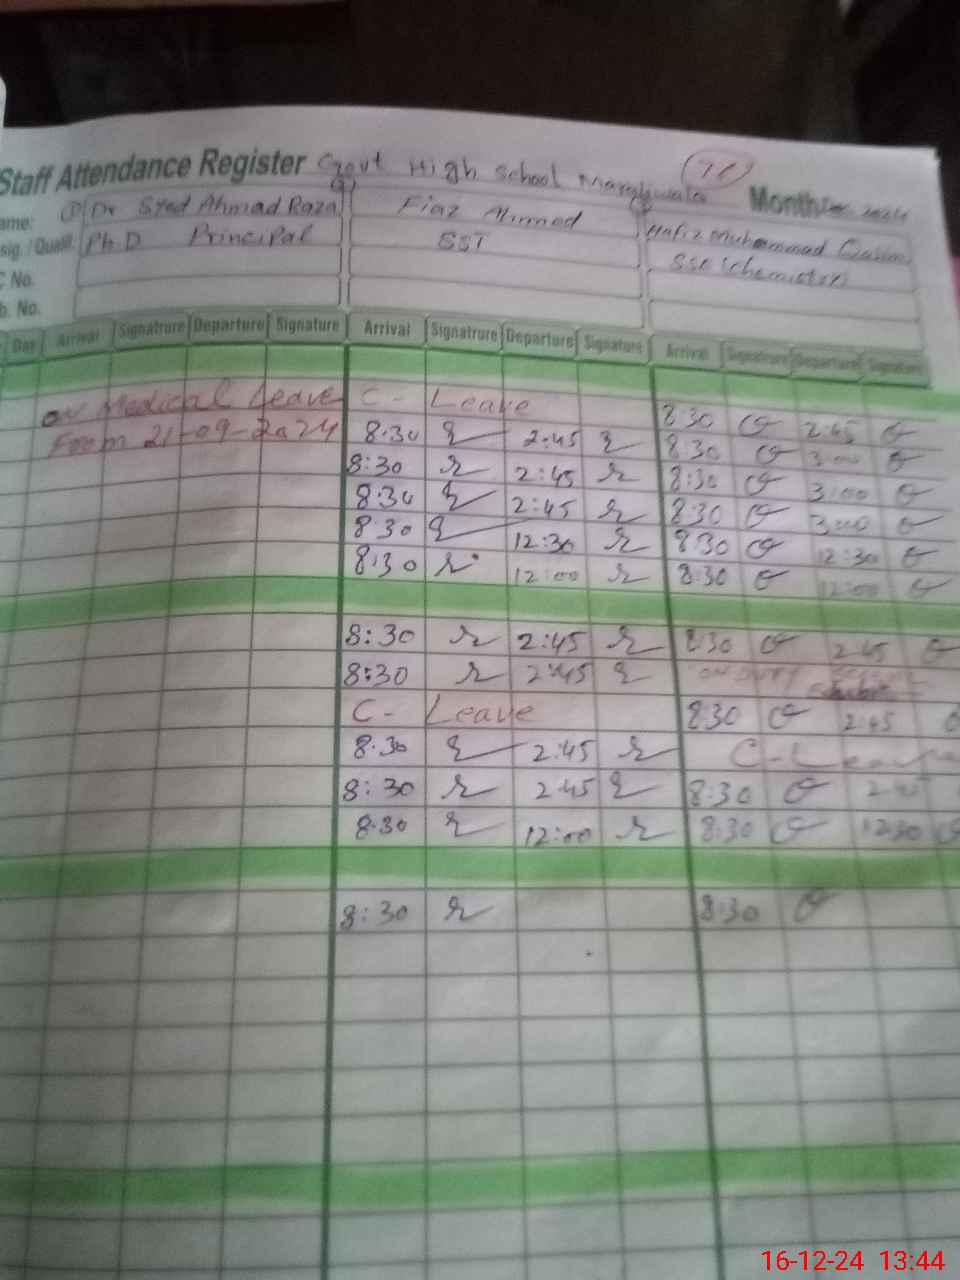 Staff Attendance Register Govt High School
Month
ame: Dr Syed Ahmad Raza Fiaz Ahmed Hafiz Muhammad Qasim
sig. / Qualif. Ph.D Principal SST SSE (chemistry)
C No.
b. No.
Day Arrival Signatrure Departure Signature Arrival Signatrure Departure Signature Arrival Signatrure Departure Signature
on Medical Leave C- Leave 8 30 2:45
From 21-09-2024 8:30 2:45 8 30 3:00
8:30 2:45 8:30 3:00
8:30 2:45 8:30 3:00
8 30 12:30 8:30 12:30
8:30 12:00 8:30 12:00
8:30 2:45 8:30 2:45
8:30 2:45 ON DUTY
C- Leave 8:30 2:45
8:30 2:45 C-Leave
8:30 2:45 8:30 2:45
8:30 12:00 8:30 12:30
8:30 8:30
16-12-24 13:44